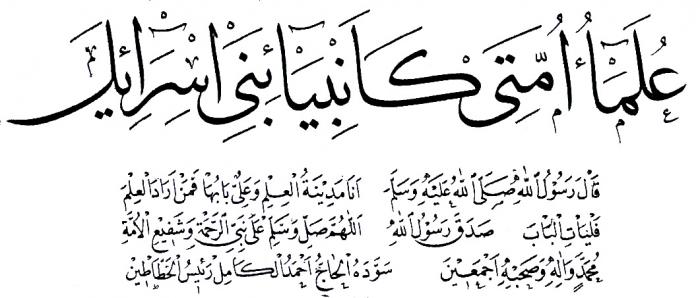 عُلَمَاءُ أُمَّتِي كَأَنْبِيَاءِ بَنِي إِسْرَائِيلَ
قَالَ رَسُولُ اللهِ صَلَّى اللهُ عَلَيْهِ وَسَلَّمَ أَنَا مَدِينَةُ الْعِلْمِ وَعَلِيٌّ بَابُهَا فَمَنْ أَرَادَ الْعِلْمَ
فَلْيَأْتِ الْبَابَ صَدَقَ رَسُولُ اللهِ اَللّٰهُمَّ صَلِّ وَسَلِّمْ عَلَى نَبِيِّ الرَّحْمَةِ وَشَفِيعِ الْأُمَّةِ
مُحَمَّدٍ وَآلِهِ وَصَحْبِهِ أَجْمَعِينَ سَوَّدَهُ الْحَاجُّ أَحْمَدُ الْكَامِلُ رَئِيسُ الْخَطَّاطِينَ